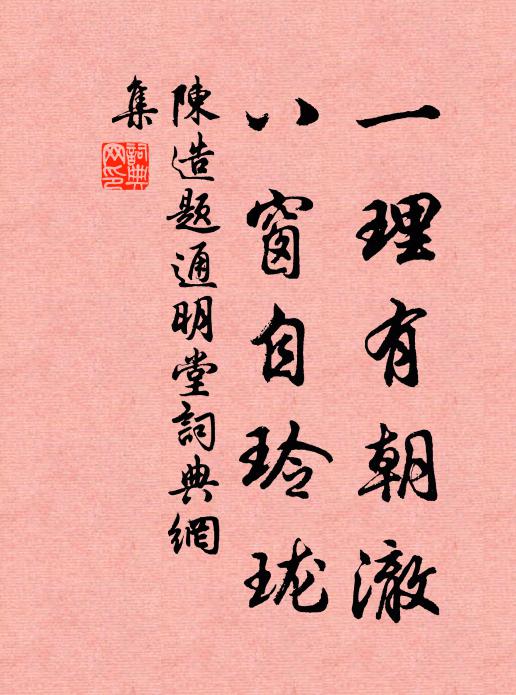 一理有朝澈
八窗自玲珑
陳造題通明堂詞典網
集
詞典网印